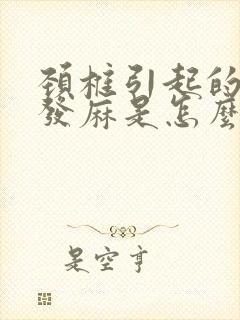 頚椎引起的
發麻是怎麼
是空亨